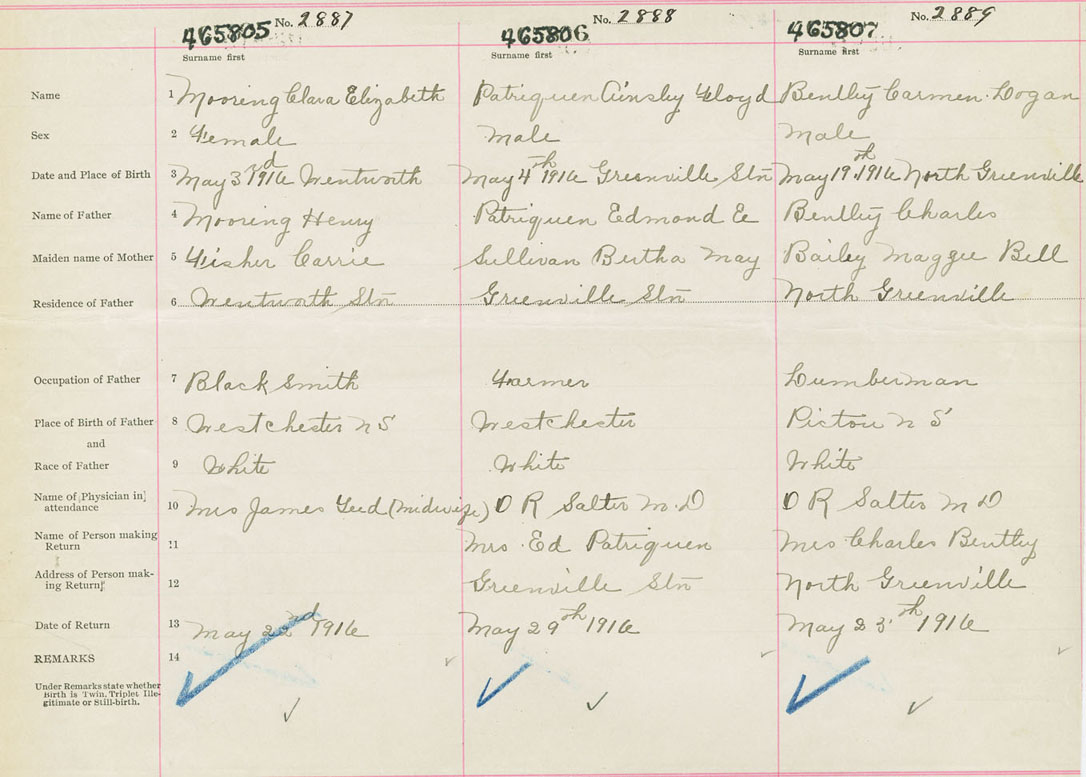 465805 No. 2887 465806 No. 2888 465807 No. 2889
Surname first Surname first Surname first
Name 1 Mooring Clara Elizabeth Patriquen Ainsby Lloyd Bentley Carmen Logan
Sex 2 Female Male Male
Date and Place of Birth 3 May 3rd 1916 Wentworth May 4th 1916 Greenville Stn May 19th 1916 North Greenville
Name of Father 4 Mooring Henry Patriquen Edmond E Bentley Charles
Maiden name of Mother 5 Fisher Carrie Sullivan Bertha May Bailey Maggie Bell
Residence of Father 6 Wentworth Stn Greenville Stn North Greenville
Occupation of Father 7 Black Smith Farmer Lumberman
Place of Birth of Father 8 Westchester N S Westchester Pictou N S
and
Race of Father 9 White White White
Name of Physician in
attendance 10 Mrs James (Midwife) D R Salter M.D D R Salter M D
Name of Person making
Return 11 Mrs. Ed Patriquen Mrs Charles Bentley
Address of Person mak-
ing Return 12 Greenville Stn North Greenville
Date of Return 13 May 22nd 1916 May 29th 1916 May 23th 1916
REMARKS 14
Under Remarks state whether
Birth is Twin, Triplet, Ille-
gitimate or Still-birth.